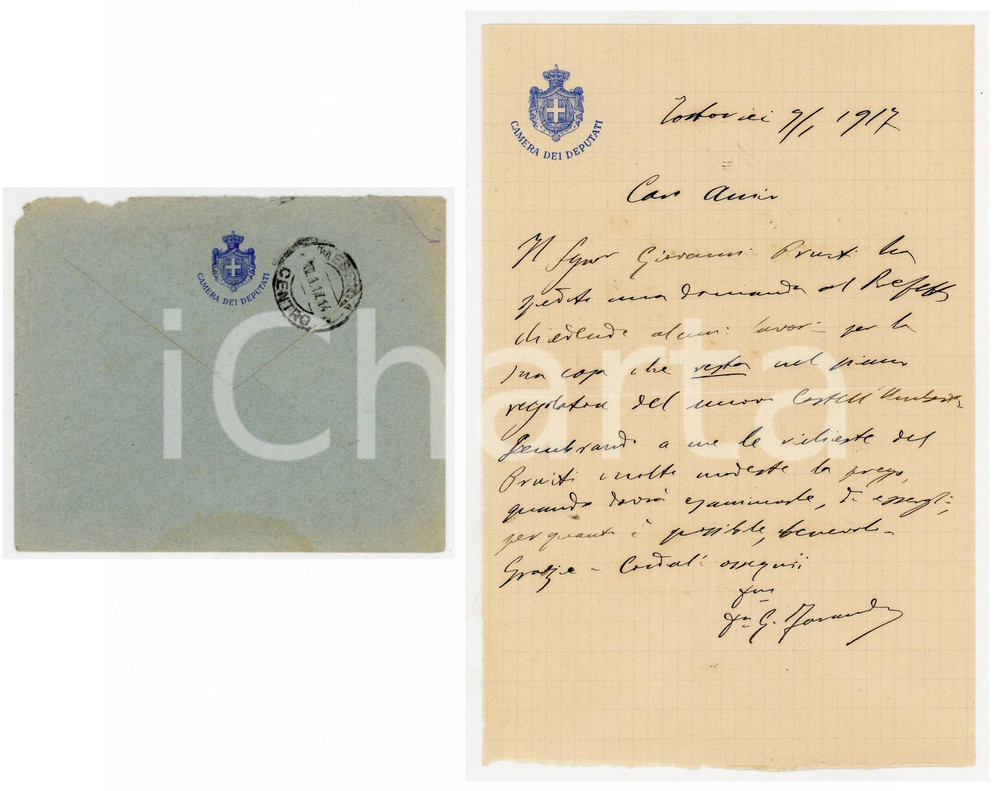 CAMERA DEI DEPUTATI
MESSINA
CENTRO
iCharta
CAMERA DEI DEPUTATI
9/1 1917
Caro Amico
Il Signor Giovanni Pruiti ha
spedito una domanda al Prefetto
chiedendo alcuni lavori per la
sua casa che resta nel piano
regolatore del nuovo Castell'Umberto
Sembrando a me le richieste del
Pruiti molto modeste la prego,
quando dovrà esaminarle, di essergli,
per quanto è possibile, benevolo.
Grazie – Cordiali ossequii
G.